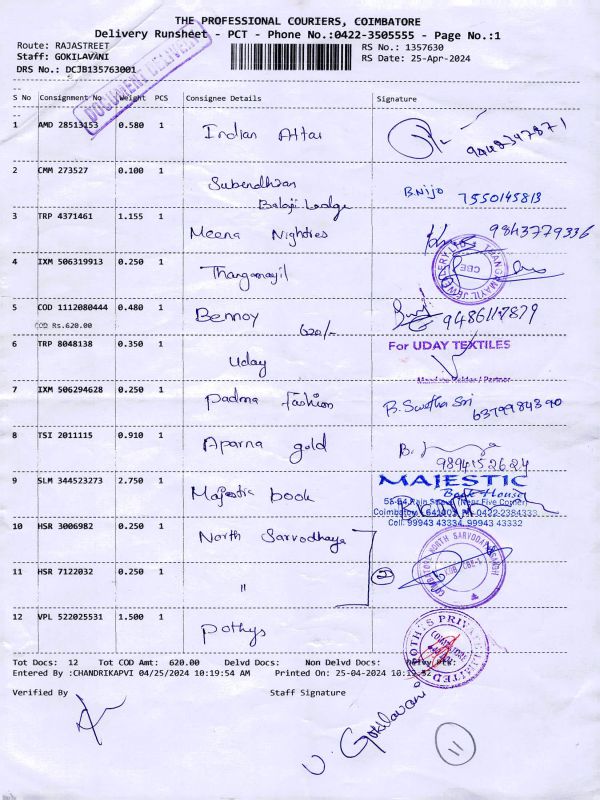 THE PROFESSIONAL COURIERS, COIMBATORE
Delivery Runsheet - PCT - Phone No.:0422-3505555 - Page No.:1
Route: RAJASTREET
RS No.: 1357630
Staff: GOKILAVANI
RS Date: 25-Apr-2024
DRS No.: DCJB135763001
DOCUMENT DELIVERY
S No Consignment No Weight PCS Consignee Details Signature
1 AMD 28513153 0.580 1 Indian Attar
2 CMM 273527 0.100 1 Subendhran
Balaji Lodge
B.Nijo 7550145813
3 TRP 4371461 1.155 1 Meena Nighties
9843779336
4 IXM 506319913 0.250 1 Thangamayil
THANGAMAYIL JEWELLERY CBE
5 COD 1112080444 0.480 1 Bennoy 620/-
COD Rs.620.00
6 TRP 8048138 0.350 1 Uday
For UDAY TEXTILES
Partner
7 IXM 506294628 0.250 1 Padma fashion
B. Swetha Sri 6379984390
8 TSI 2011115 0.910 1 Aparna gold
9894152624
9 SLM 344523273 2.750 1 Majestic book
MAJESTIC
Book House
Coll: 99943 43334, 99943 43332
10 HSR 3006982 0.250 1 North Sarvodhaya
11 HSR 7122032 0.250 1 "
2
COIMBATORE NORTH SARVODAYA SANGH
12 VPL 522025531 1.500 1 Pothys
POTHYS PRIVATE LIMITED
Tot Docs: 12 Tot COD Amt: 620.00 Delvd Docs: Non Delvd Docs:
Entered By :CHANDRIKAPVI 04/25/2024 10:19:54 AM Printed On: 25-04-2024 10:19:52
Verified By Staff Signature
V. Gokilavani
11